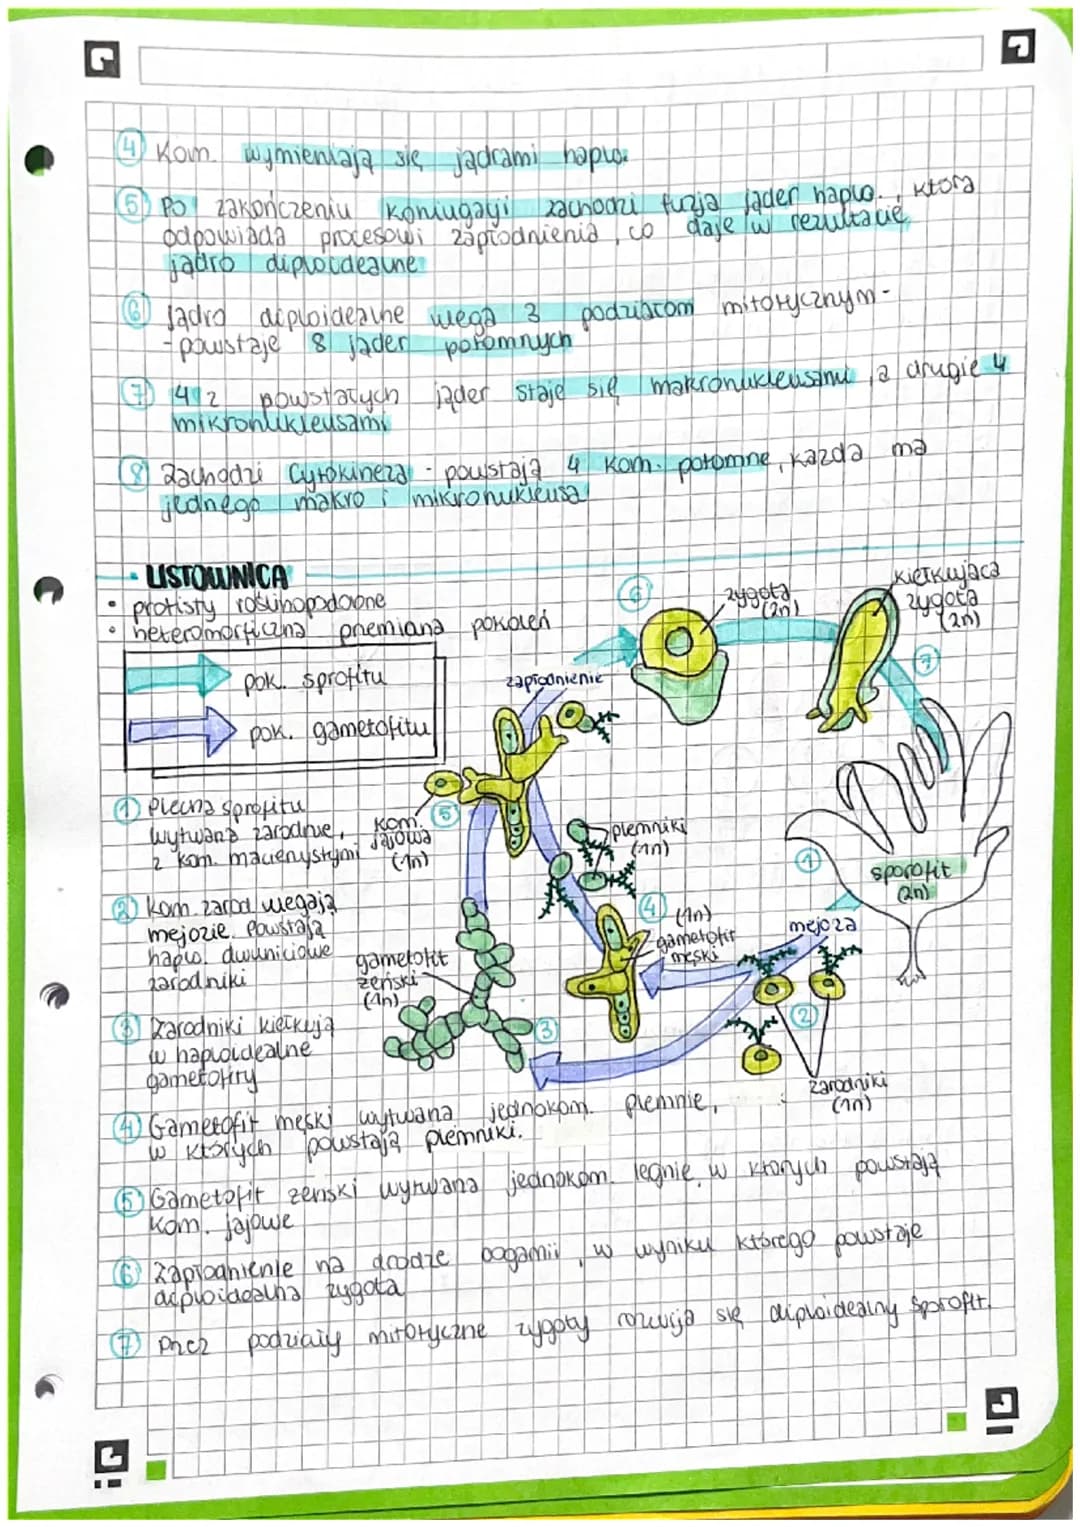 ④ Kom. wymieniają się jądrami haplo.
⑤ Po zakończeniu koniugacji zachodzi fuzja jąder haplo., która
odpowiada procesowi zapłodnienia, co daje w rezultacie
jądro diploidealne
⑥ Jądro diploidealne ulega 3 podziałom mitotycznym -
- powstaje 8 jąder potomnych
⑦ 4 z powstałych jąder staje się makronukleusami, a drugie 4
mikronukleusami
⑧ Zachodzi cytokineza - powstają 4 kom. potomne, każda ma
jednego makro i mikronukleusa
• LISTOWNICA
• protisty roślinopodobne
• heteromorficzna przemiana pokoleń
pok. sprofitu
pok. gametofitu
zapłodnienie
⑥
zygota
(2n)
kiełkująca
zygota
(2n)
⑦
① Plecha sprofitu
wytwarza zarodnie,
z kom. macierzystymi
kom.
jajowa
(1n)
⑤
plemniki
(1n)
①
sporofit
(2n)
② Kom. zarod. ulegają
mejozie. Powstają
haplo. dwuwiciowe
zarodniki
gametofit
żeński
(1n)
④
(1n)
gametofit
męski
mejoza
②
③ Zarodniki kiełkują
w haploidealne
gametofity
③
zarodniki
(1n)
④ Gametofit męski wytwarza jednokom. plemnie,
w których powstają plemniki.
⑤ Gametofit żeński wytwarza jednokom. lęgnie, w których powstają
kom. jajowe
⑥ Zapłodnienie na drodze oogamii, w wyniku którego powstaje
diploidealna zygota
⑦ Przez podziały mitotyczne zygoty rozwija się diploidealny sporofit.